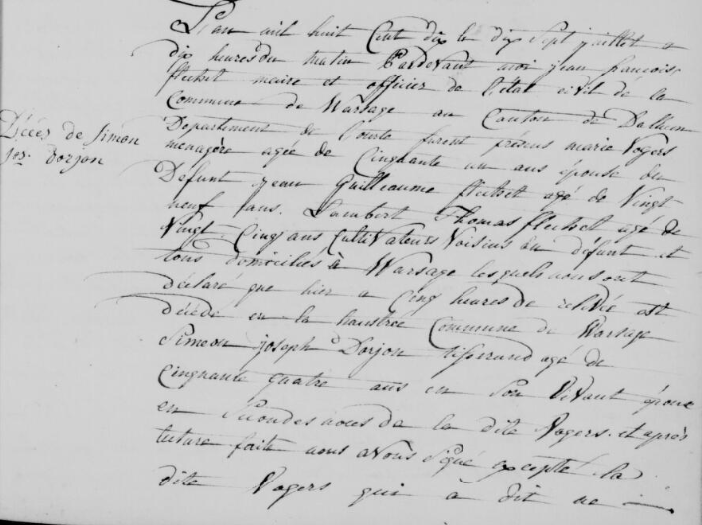 L'an mil huit Cent dix le dix Sept juillet a
dix heures du matin Pardevant moi jean françois
flechet maire et officier de l'état civil de la
Commune de Warsage au Canton de Dalhem
Décès de Simon
jos. Dorjon
Departement de l'ourte furent présens marie Vogers
menagère agée de Cinquante un ans épouse du
Defunt jean Guilleaume flechet agé de Vingt
neuf ans. Lambert Thomas flechet agé de
Vingt Cinq ans Cultivateurs Voisins du défunt et
tous domiciliés à Warsage lesquels nous ont
déclaré que hier a Cinq heures de relevée est
décédé en la Commune de Warsage
Simeon joseph Dorjon tisserand agé de
Cinquante quatre ans en son Vivant époux
en Sécondes noces de la dite Vogers. et après
lecture faite nous avons Signé excepté la
dite Vogers qui à dit ne